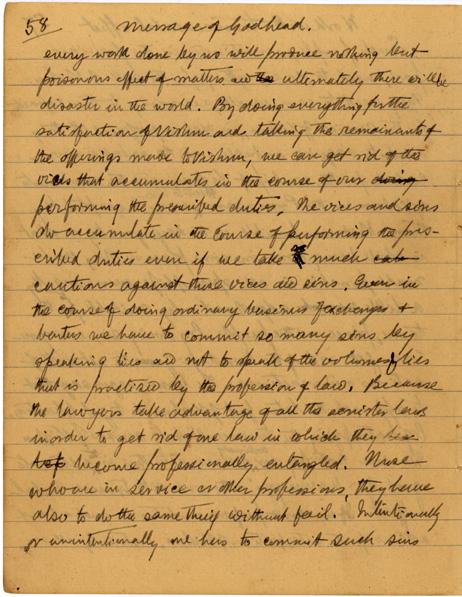 58 Message of Godhead.
every work done by us will produce nothing but
poisonous effect of matters and ultimately there will be
disaster in the world. By doing everything for the
satisfaction of Vishnu and taking the remainants of
the offerings made to Vishnu, we can get rid of the
vices that accumulates in the course of our doing
performing the prescribed duties. The vices and sins
do accumulate in the course of performing the pres-
cribed duties even if we take much
cautions against these vices and sins. Even in
the course of doing ordinary business exchanges &
barter we have to commit so many sins by
speaking lies and not to speak of the volumes of lies
that is practised by the profession of law. Because
the lawyers take advantage of all the senister laws
in order to get rid of one law in which they
become professionally entangled. Those
who are in service or other professions, they have
also to do the same thing without fail. Intentionally
or unintentionally one has to commit such sins